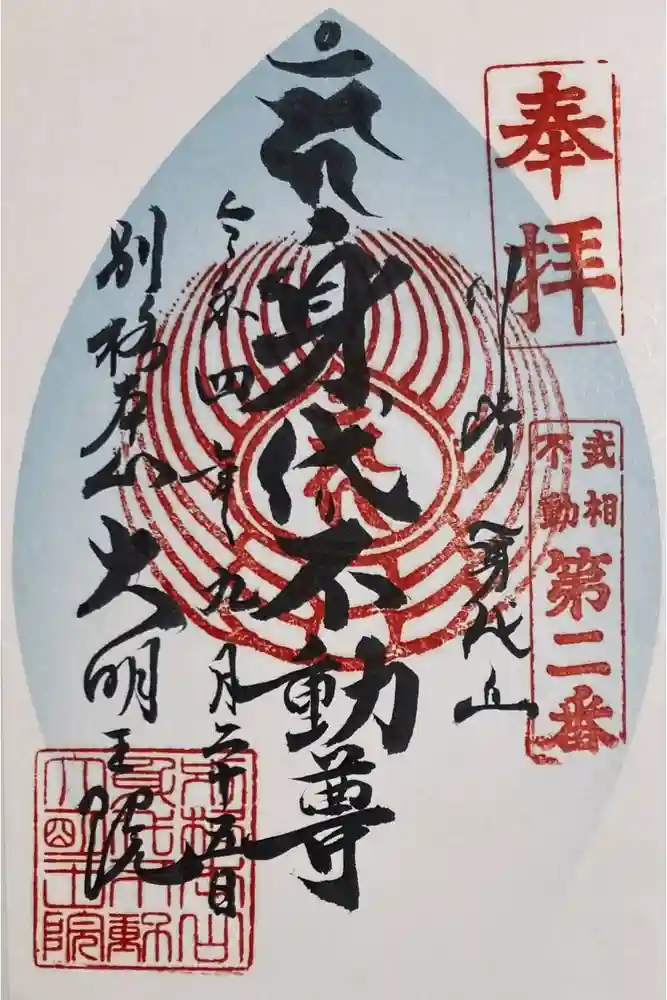 奉拝
武相
不動
第二番
川崎 身代山
身代不動尊
令和四年九月二十五日
別格本山 大明王院